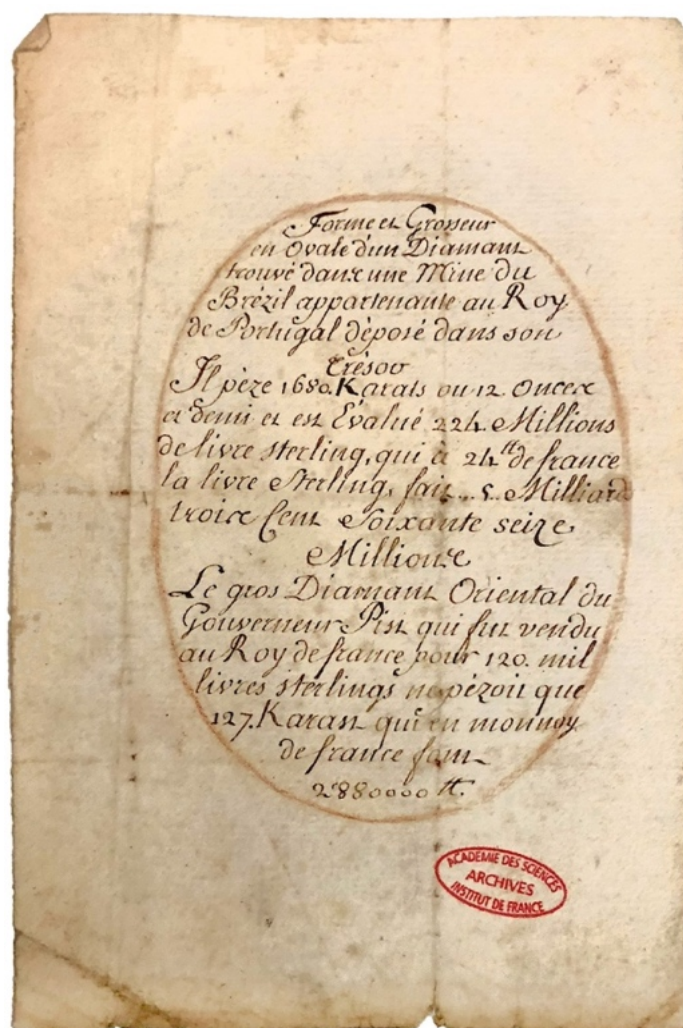 Forme et Grosseur
en Ovale d'un Diamant
trouvé dans une Mine du
Brézil appartenante au Roy
de Portugal déposé dans son
Trésor
Il pèze 1680. Karats ou 12. Onces
et demi et est Évalué 224. Millions
de livre sterling, qui à 24 ₶ de france
la livre Sterling, fait... 5.. Milliards
trois Cent Soixante seize
Millions
Le gros Diamant Oriental du
Gouverneur Pist qui fut vendu
au Roy de france pour 120. mil
livres sterlings ne pézoit que
127. Karast qui en monnoy
de france font
2'880000 ₶.
ACADEMIE DES SCIENCES
ARCHIVES
INSTITUT DE FRANCE